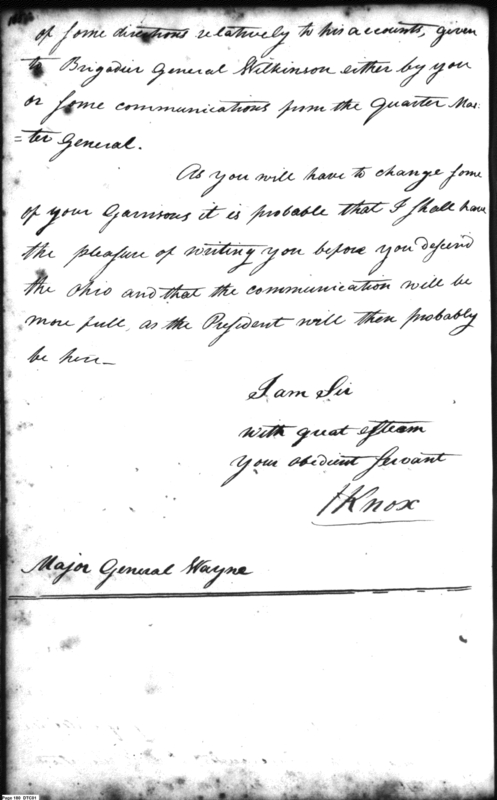 of some directions relatively to his accounts, given
to Brigadier General Wilkinson either by you
or some communications from the Quarter Mas:
=ter General.
As you will have to change some
of your Garrisons it is probable that I shall have
the pleasure of writing you before you descend
the Ohio and that the communication will be
more full, as the President will then probably
be here—
I am Sir
with great esteem
your obedient servant
HKnox
Major General Wayne
Page 186 DTC01